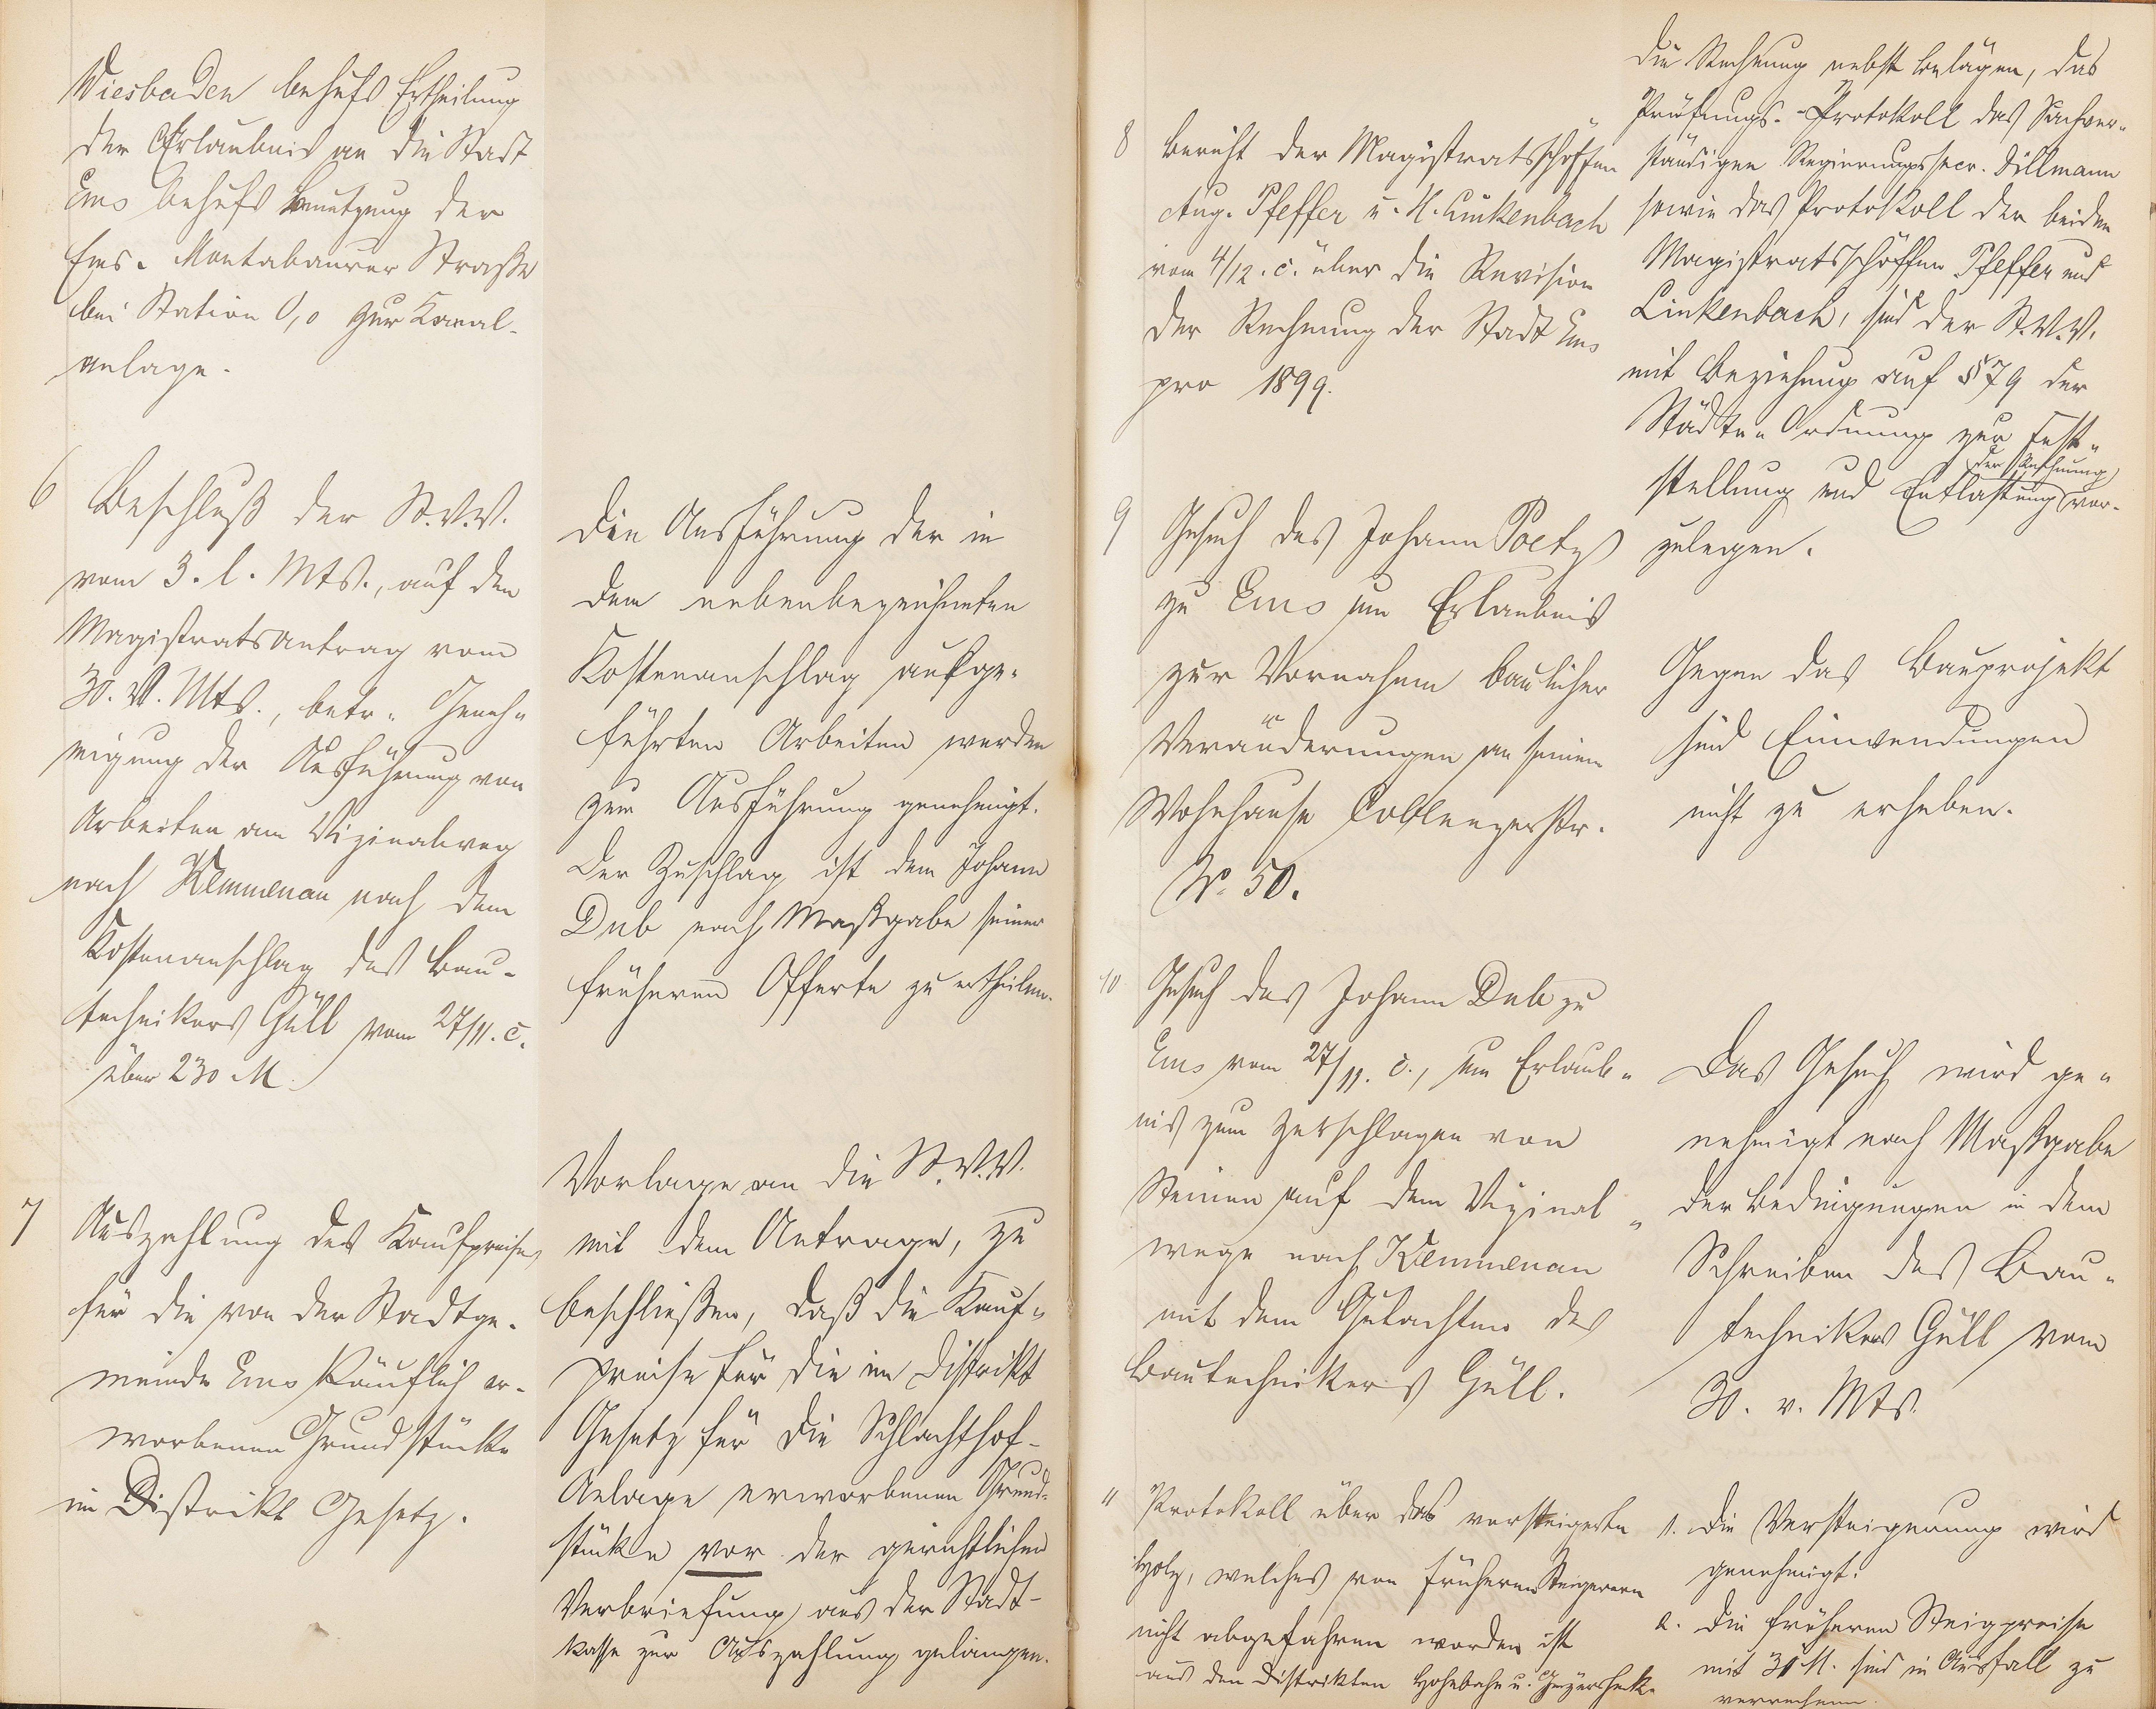 Wiesbaden behufs Ertheilung
der Erlaubnis an die Stadt
Ems behufs Benutzung der
Ems-Montabaurer Straße
bei Station 0,0 zur Kanal-
anlage.
6 Beschluß der St.V.V.
vom 3. l. Mts., auf den
Magistratsantrag vom
30. v. Mts., betr. Geneh-
migung der Ausführung von
Arbeiten am Vizinalweg
nach Kemmenau nach dem
Kostenanschlag des Bau-
technikers Güll vom 27/11. c.
über 230 M.
Die Ausführung der in
dem nebenbezeichneten
Kostenanschlag aufge-
führten Arbeiten werden
zur Ausführung genehmigt.
Der Zuschlag ist dem Johann
Dub nach Maßgabe seiner
früheren Offerte zu ertheilen.
7 Auszahlung des Kaufpreises
für die von der Stadtge-
meinde Ems käuflich er-
worbenen Grundstücke
im Distrikt Gesetz.
Vorlage an die St.V.V.
mit dem Antrage, zu
beschließen, daß die Kauf-
preise für die im Distrikt
Gesetz für die Schlachthof-
Anlage erworbenen Grund-
stücke vor der gerichtlichen
Verbriefung aus der Stadt-
kasse zur Auszahlung gelangen.
8 Bericht der Magistratsschöffen
Aug. Pfeffer u. H. Linkenbach
vom 4/12. c. über die Revision
der Rechnung der Stadt Ems
pro 1899.
Die Rechnung nebst Belägen, das
Prüfungs-Protokoll des Sachver-
ständigen Regierungssecr. Dillmann
sowie das Protokoll der beiden
Magistratsschöffen Pfeffer und
Linkenbach, sind der St.V.V.
mit Beziehung auf § 79 der
Städte-Ordnung zur Fest-
der Rechnung
stellung und Entlastung vor-
zulegen.
9 Gesuch des Johann Poetz
zu Ems um Erlaubnis
zur Vornahme baulicher
Veränderungen an seinem
Wohnhause Coblenzerstr.
No. 50.
Gegen das Bauprojekt
sind Einwendungen
nicht zu erheben.
10 Gesuch des Johann Dub zu
Ems vom 27/11. c., um Erlaub-
nis zum Zerschlagen von
Steinen auf dem Vizinal-
wege nach Kemmenau
mit dem Gutachten des
Bautechnikers Güll.
Das Gesuch wird ge-
nehmigt nach Maßgabe
der Bedingungen in dem
Schreiben des Bau-
technikers Güll vom
30. v. Mts.
11 Protokoll über das versteigerte
Holz, welches von früheren Steigerern
nicht abgefahren worden ist
aus den Distrikten Hohebahn u.
1. Die Versteigerung wird
genehmigt.
2. Die früheren Steigpreise
mit 31 M. sind in Ausfall zu
verrechnen.